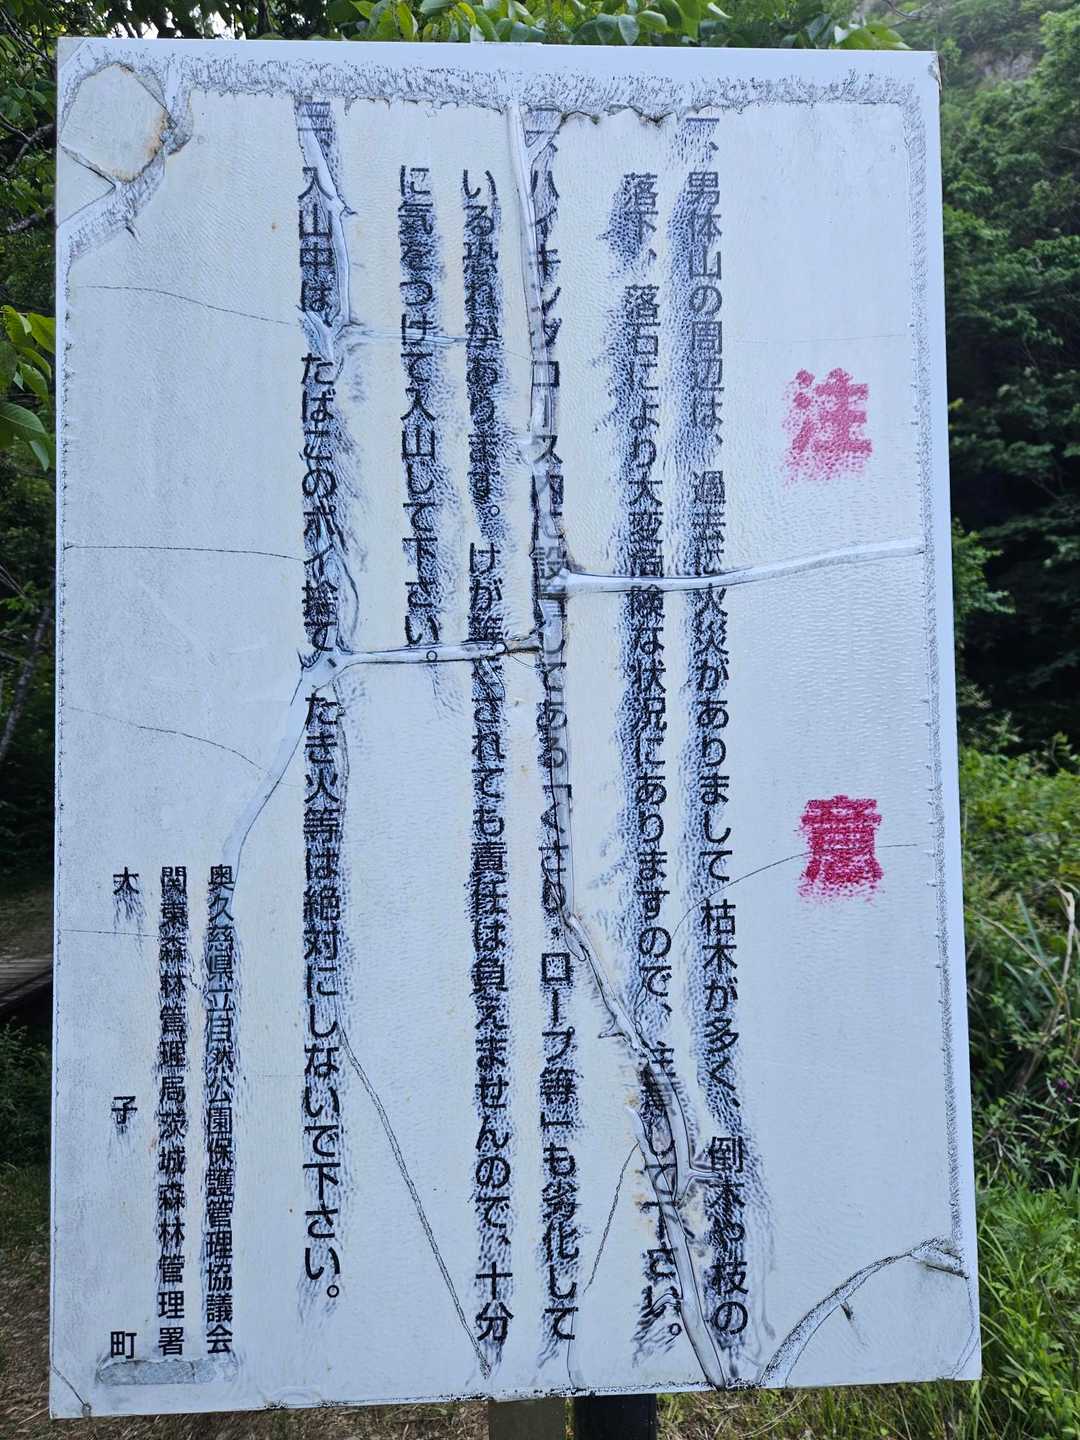 注意
一、男体山の周辺は、過去に火災がありまして枯木が多く、倒木や枝の
落下、落石により大変危険な状況にありますので、注意して下さい。
二、ハイキングコース内に設置してある「くさり、ロープ等」も劣化して
いる恐れがあります。けが等なされても責任は負えませんので、十分
に気をつけて入山して下さい。
三、入山中は、たばこのポイ捨て、たき火等は絶対にしないで下さい。
奥久慈県立自然公園保護管理協議会
関東森林管理局茨城森林管理署
大子町